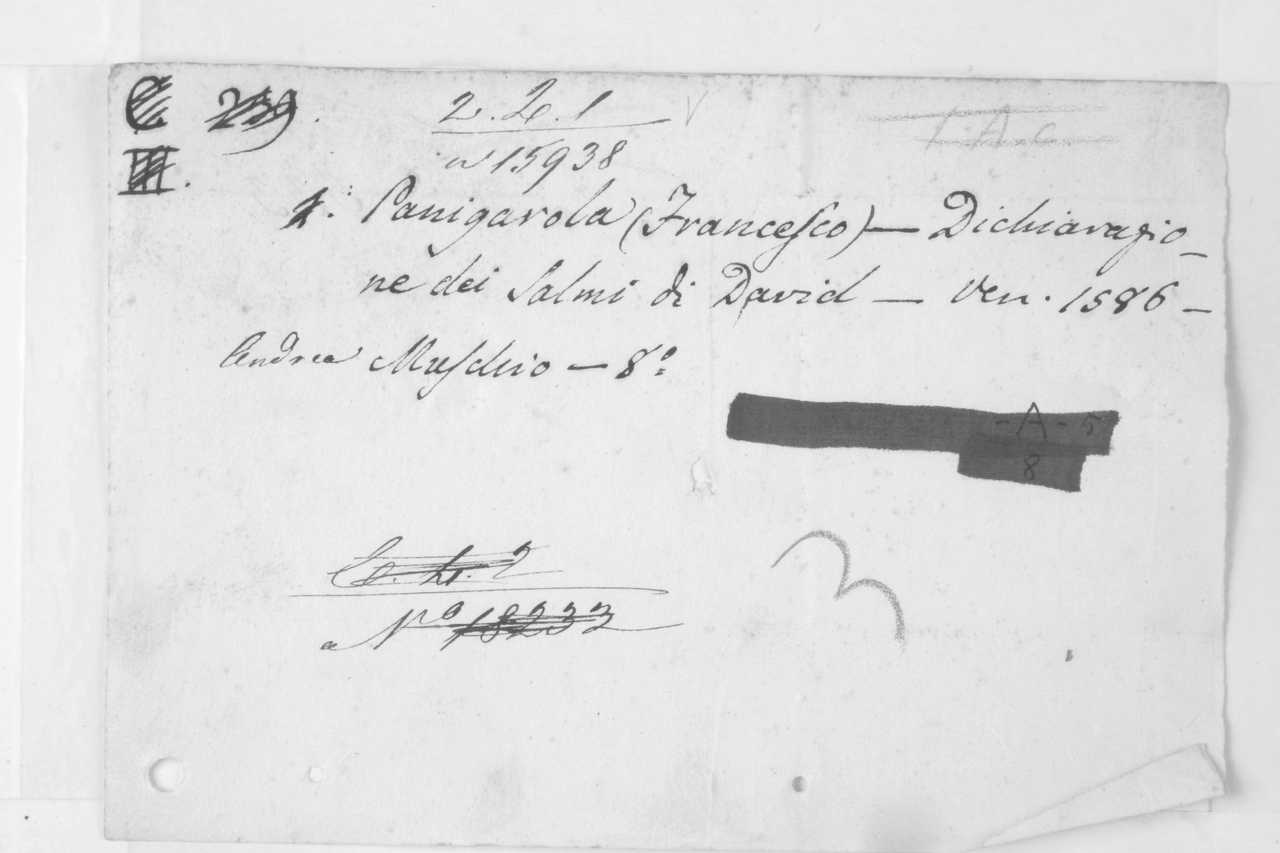 2. 2. 1
a 15938
1. Panigarola (Francesco) — Dichiaragio_
ne dei Salmi di David — Ven. 1586 —
Andrea Muschio — 8°
-A-5
8
Nº 18233
3